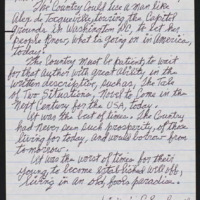 The Country could use a man like
Alex de Tocqueville, touring the Capitol
Grounds in Washington DC, to let her
people know, what is going on in America,
today!
The Country must be patient to wait
for that author with great ability in the
written descriptor, such as, The Tale
of Two Situations, Novel to come in the
Next Century for the USA, today.
It was the best of times. The Country
had never seen such prosperity, of those
living for today, and would borrow from
tomorrow.
It was the worst of times for their
young to become established well off,
living in an old, fools paradise.